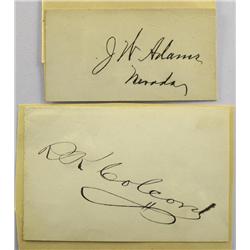 J W Adams
Nevada
R K Colcord